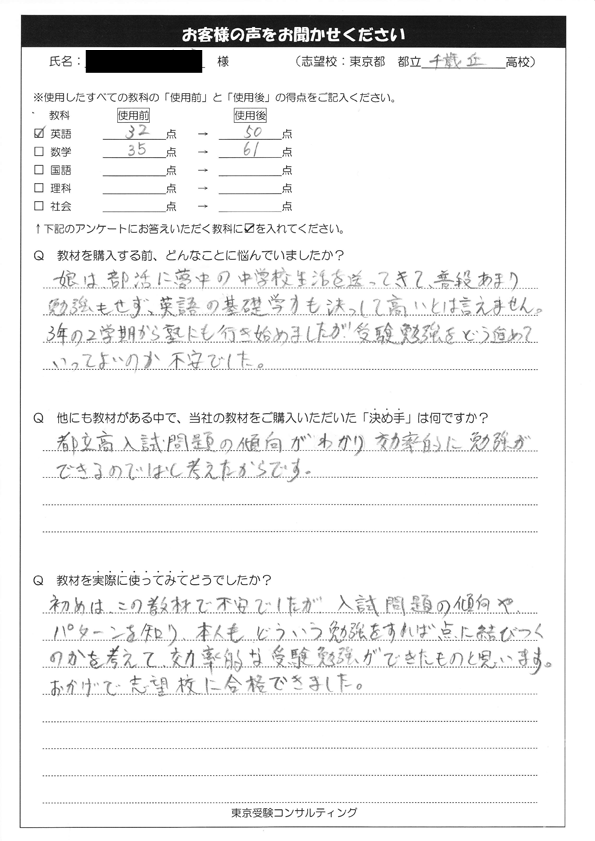 お客様の声をお聞かせください
氏名： 様 （志望校：東京都 都立 千歳丘 高校）
※使用したすべての教科の「使用前」と「使用後」の得点をご記入ください。
教科 使用前 使用後
☑ 英語 32 点 → 50 点
□ 数学 35 点 → 61 点
□ 国語 点 → 点
□ 理科 点 → 点
□ 社会 点 → 点
↑下記のアンケートにお答えいただく教科に☑を入れてください。
Q 教材を購入する前、どんなことに悩んでいましたか？
娘は部活に夢中の中学校生活を送ってきて、普段あまり
勉強もせず、英語の基礎学力も決っして高いとは言えません。
3年の2学期から塾にも行き始めましたが受験勉強をどう進めて
いってよいのか不安でした。
Q 他にも教材がある中で、当社の教材をご購入いただいた「決め手」は何ですか？
都立高入試問題の傾向がわかり効率的に勉強が
できるのではと考えたからです。
Q 教材を実際に使ってみてどうでしたか？
初めは、この教材で不安でしたが 入試問題の傾向や、
パターンを知り、本人も どういう勉強をすれば点に結びつく
のかを考えて、効率的な受験勉強ができたものと思います。
おかげで志望校に合格できました。
東京受験コンサルティング